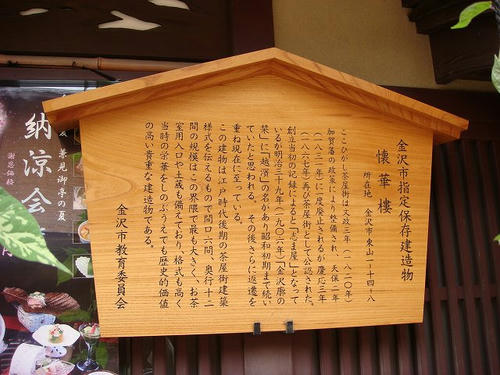 金沢市指定保存建造物
懐華樓
所在地 金沢市東山一丁目十四-八
ここひがし茶屋街は文政三年(一八二〇年)
加賀藩の政策により整備され、天保二年
(一八三一年)に一度廃止されるが慶応三年
(一八六七年)再び茶屋街として公認された。
創立当初の記録によると
となって
いるが明治三十九年(一九〇六年)「金沢廓の
栞」に「越濱」の名があり昭和初期まで続い
ていたと思われる。その後、さらに返遷を
重ね現在に至っている。
この建物は江戸時代後期の茶屋街建築
様式を伝えるもので間口六間、奥行十二
間の規模はこの界隈で最も大きく、お茶
室用入口や土蔵も備えており、格式も高く
当時の栄華をしのぶうえでも歴史的価値
の高い貴重な建造物である。
金沢市教育委員会
夏 兼見御亭の夏
納涼会
謝恩価格